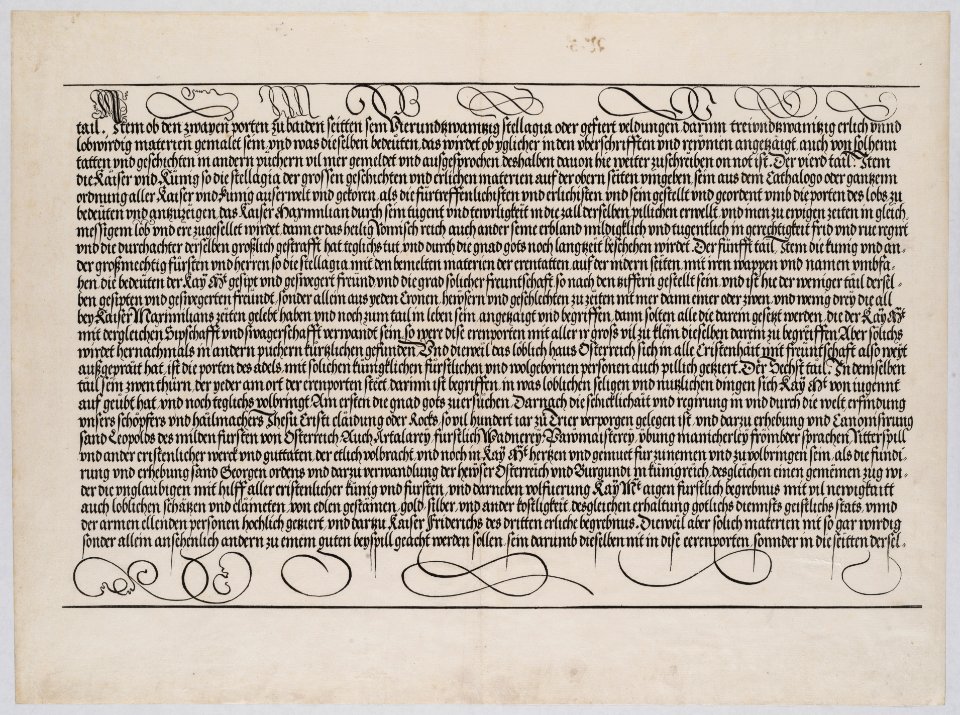 tail. Item ob den zwayen porten zu baiden seitten sein Vierundtzwaintzig stellagia oder gefiert veldungen darinn treiundtzwaintzig erlich unnd
lobwirdig materien gemalet sein, und was dieselben bedeuten, das wirdet ob yglicher in den uberschrifften und reymen angetzaigt auch von solhenn
tatten und geschichten in andern puchern vil mer gemeldet und ausgesprochen deshalben davon hie weiter zuschreiben on not ist. Der vierd tail. Item
die Kaiser und Kunig so die stellagia der grossen geschichten und erlichen materien auf der obern seiten umgeben, sein aus dem Cathalogo oder gantzenn
ordnung aller Kaiser und Kunig auserwelt und gekoren, als die fürtreffenlichisten und erlichisten, und sein gestellt und geordent umb die porten des lobs zu
bedeuten und antzuzeigen, das Kaiser Maximilian durch sein tugent und tewrligkeit in die zall derselben pillichen erwellt, und inen zu ewigen zeiten in gleich
messigem lob und ere zugesellet wirdet, dann er das heilig Romisch reich auch ander seine erbland mildigklich und tugentlich in gerechtigkeit frid und rue regirt
und die durchachter derselben groslich gestrafft hat teglichs tut, und durch die gnad gots noch langtzeit beschehen wirdet. Der fünfft tail. Item die kunig und an-
der großmechtig fürsten und herren so die stellagia mit den bemelten materien der erentatten, auf der nidern seiten, mit iren wappen und namen umbfa-
hen, die bedeuten der Kay Mt gesipt und geswegert freünd, und die grad solicher freuntschaft so nach den ziffern gestellt sein, und ist hie der weniger tail dersel-
ben gesipten und geswegerten freündt, sonder allein aus yeden Cronen, heysern und geschlechten zu zeiten mit mer dann einer oder zwen, und wenig drey die all
bey Kaiser Maximilians zeiten gelebt haben und noch zum tail in leben sein, angetzaigt und begriffen, dann solten alle die darein gesetzt werden, die der Kay Mt
mit dergleichen Sipschafft und swagerschafft verwandt sein, so were dise erenporten mit aller ir groß vil zu klein dieselben darein zu begreiffen. Aber solichs
wirdet hernachmals in andern puchern kürtzlichen gefunden. Und dieweil das löblich haus Osterreich sich in alle Cristenhait mit freuntschaft also weyt
außgeprait hat, ist die porten des adels, mit solichen künigklichen fürstlichen und wolgebornen personen auch pillich getziert. Der Sechst tail. In demselben
tail sein zwen thürn, der yeder am ort der erenporten stett, darinn ist begriffen, in was loblichen seligen und nutzlichen dingen sich Kay Mt von iugennt
auf geübt hat, und noch teglichs volbringt. Am ersten die gnad gots zu ersuchen. Darnach die schicklichait und regirung in und durch die welt, erfindung
unsers schöpfers und hailmachers Jhesu Cristi claidung oder Rocks so vil hundert iar zu Trier verporgen gelegen ist, und darzu erhebung und Canonisirung
sand Leopolds des milden fursten von Osterreich. Auch Artalarey, fürstlich Wadnerey, Pawmaisterey, übung manicherley frömbder sprachen, Ritterspill
und ander cristenlicher werck und guttaten, der etlich volbracht, und noch in Kay Mt hertzen und gemuet für zunemen und zu volbringen sein, als die fundi-
rung und erhebung sand Georgen ordens, und darzu verwandlung der heyser Osterreich und Burgundi in kunigreich, desgleichen einen gemeinen zug wi-
der die unglaubigen mit hilff aller cristenlicher kunig und fursten, und darneben volfuerung Kay Mt aigen furstlich begrebnus mit vil newigkaitt
auch loblichen schätzen und claineten, von edlen gestainen, gold, silber, und ander kostligkeit, desgleichen erhaltung gotlichs diennsts geistlichs stats, unnd
der armen ellenden personen hochlich getziert, und dartzu Kaiser Friderichs des dritten erliche begrebnus. Diewil aber solich materien mit so gar wirdig
sonder allein ansehenlich andern zu einem guten beyspill geacht werden sollen, sein darumb dieselben mit in dise eerenporten, sonnder in die seitten dersel-